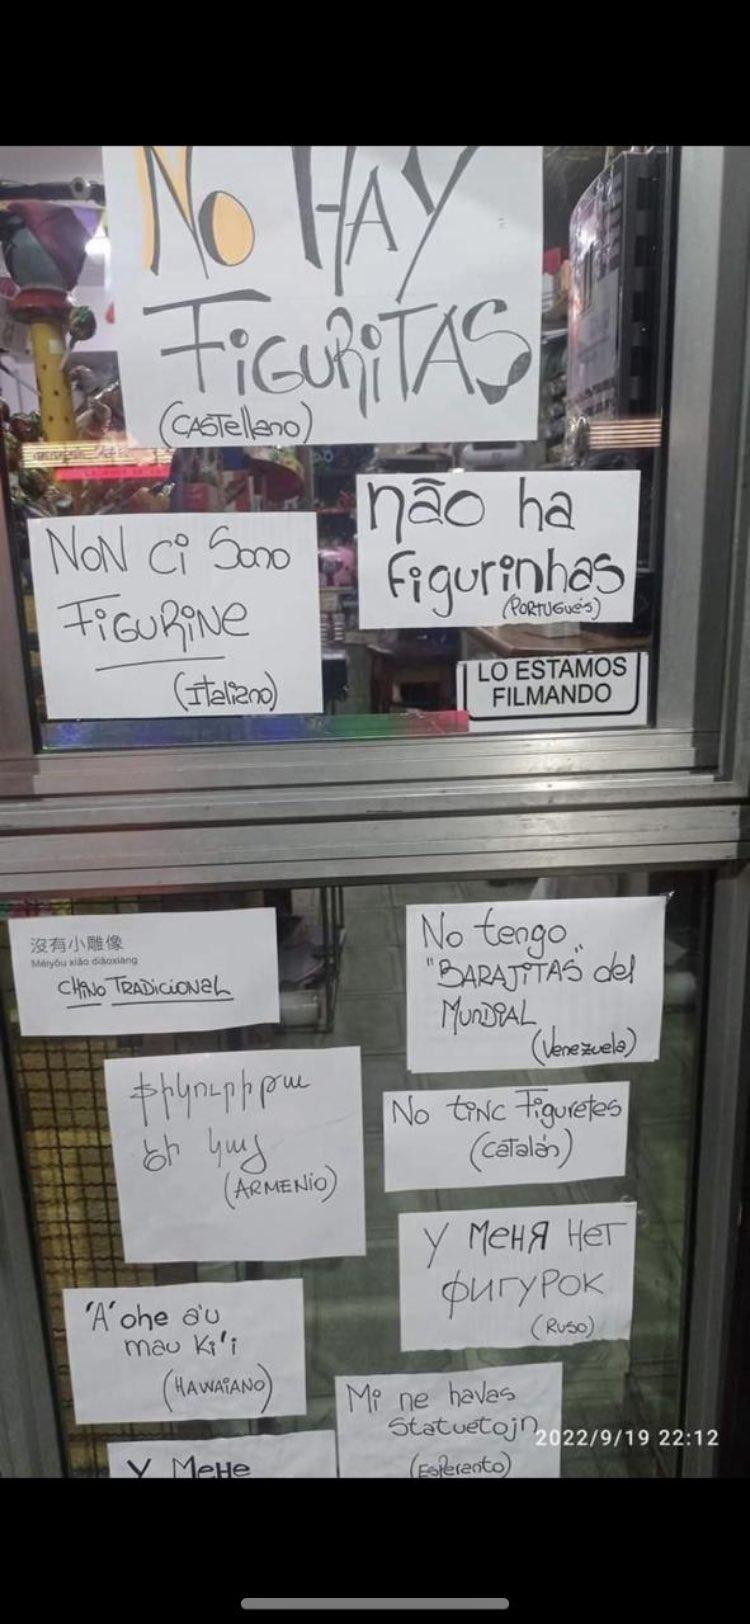 No HAY
FiGURiTAS
(CASTellano)
não ha
figurinhas
(PORTUGUéS)
NoN ci Sono
FiGURiNe
(Italiano)
LO ESTAMOS
FILMANDO
沒有小雕像
Méiyǒu xiǎo diāoxiàng
CHiNo TRADICIONAL
No tengo
"BARAJITAS" del
MUNDIAL
(Venezuela)
ֆիկուրիթա
ձի կայ
(ARMENiO)
No tiNC Figuretes
(Catalán)
У МеНЯ НеТ
ФИГУРОК
(RUSO)
'A'ohe a'u
mau Ki'i
(HAWAiANO)
Mi ne havas
Statuetojn
(Esperanto)
У МеНе
2022/9/19 22:12